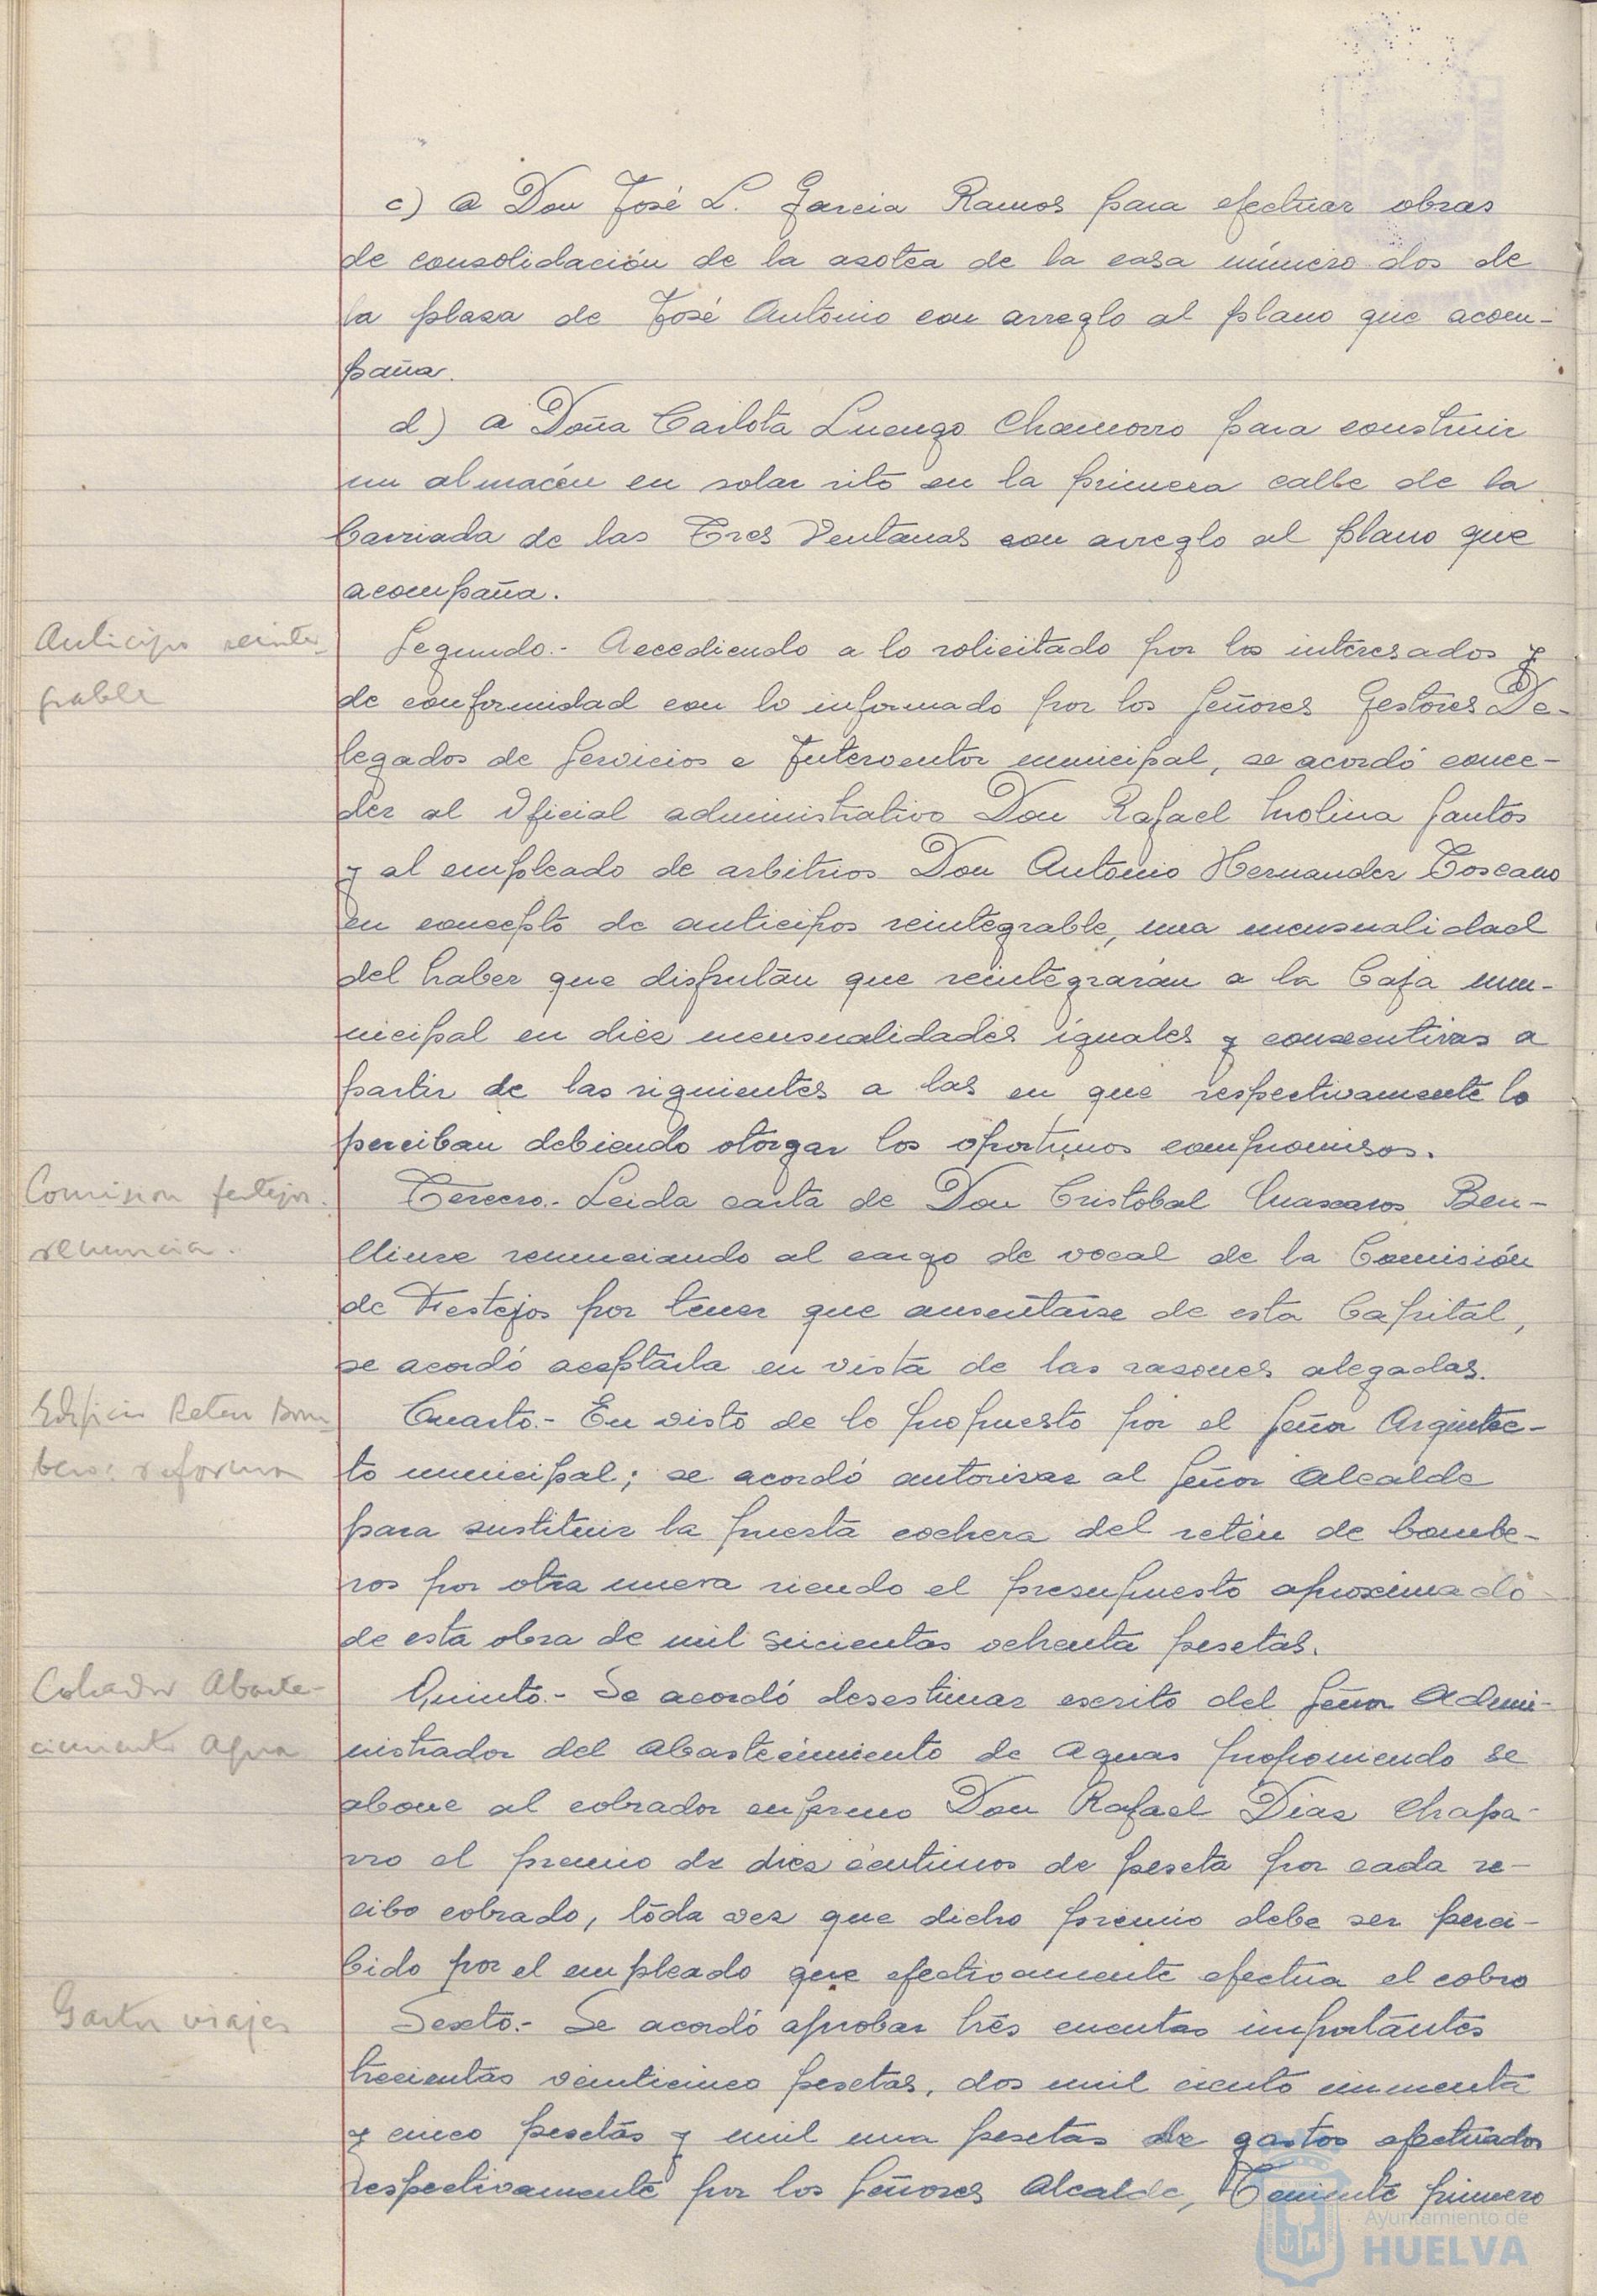 c) a Don José L. Garcia Ramos para efectuar obras
de consolidación de la azotea de la casa número dos de
la plaza de José Antonio con arreglo al plano que acom-
paña.
d) a Doña Carlota Luengo Chamorro para construir
un almacén en solar sito en la primera calle de la
barriada de las Tres Ventanas con arreglo al plano que
acompaña.
Anticipo reinte-
grable
Segundo.- Accediendo a lo solicitado por los interesados y
de conformidad con lo informado por los Señores Gestores De-
legados de Servicios e Interventor municipal, se acordó conce-
der al Oficial administrativo Don Rafael Molina Santos
y al empleado de arbitrios Don Antonio Hernandez Toscano
en concepto de anticipos reintegrable, una mensualidad
del haber que disfrutan que reintegrarán a la Caja mu-
nicipal en diez mensualidades iguales y consecutivas a
partir de las siguientes a las en que respectivamente lo
perciban debiendo otorgar los oportunos compromisos.
Comision festejos.
renuncia.
Tercero.- Leida carta de Don Cristobal Ben-
lliure renunciando al cargo de vocal de la Comisión
de Festejos por tener que ausentarse de esta Capital,
se acordó aceptarla en vista de las razones alegadas.
Edificio Reten Bom
beros reforma
Cuarto.- En visto de lo propuesto por el Señor Arquitec-
to municipal; se acordó autorizar al Señor Alcalde
para sustituir la puerta cochera del retén de bombe-
ros por otra nueva siendo el presupuesto aproximado
de esta obra de mil seicientas ochenta pesetas.
Cobrador Abaste-
cimiento Agua
Quinto.- Se acordó desestimar escrito del Señor Admi-
nistrador del Abastecimiento de Aguas proponiendo se
abone al cobrador enfermo Don Rafael Diaz Chapa-
rro el premio de diez centimos de peseta por cada re-
cibo cobrado, toda vez que dicho premio debe ser perci-
bido por el empleado que efectivamente efectua el cobro
Gastos viajes
Sexto.- Se acordó aprobar trés cuentas importantes
trecientas veinticinco pesetas, dos mil ciento cinmenta
y cinco pesetas y mil una pesetas de gastos efectuados
respectivamente por los Señores Alcalde, Teniente primero
Ayuntamiento de
HUELVA